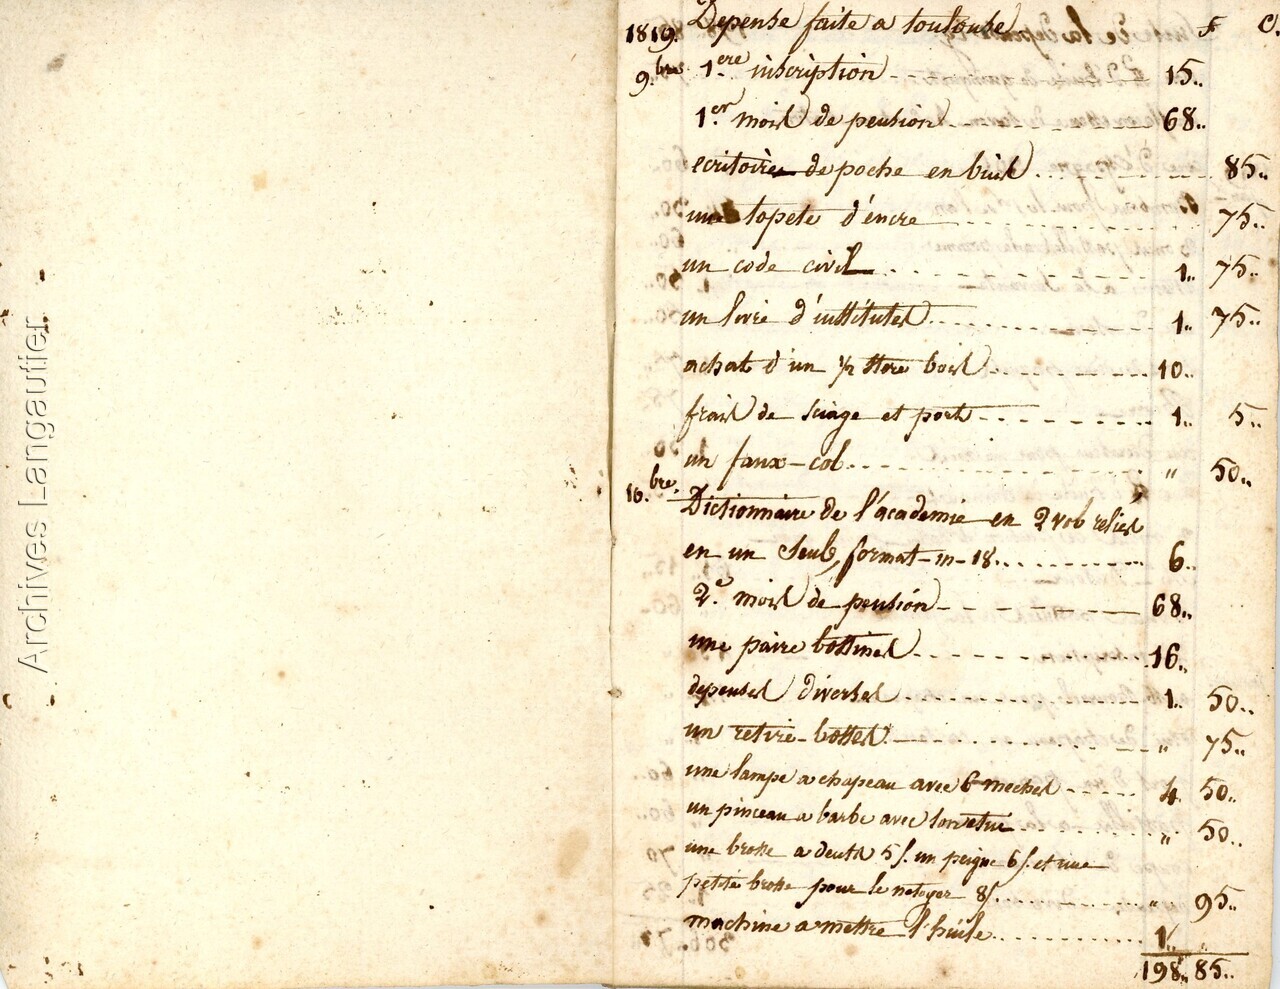 Archives Langautier
1819. Depense faite a toulouse f C.
9.bre 1.ere inscription 15..
1.er mois de pension 68..
ecritoire de poche en buis 85..
une topete d'encre 75..
un code civil 1.. 75..
un livre d'institutes 1.. 75..
achat d'un 1/2 stere bois 10..
frais de sciage et port 1.. 5..
un faux-col " 50..
10.bre. Dictionnaire de l'académie en 2 vol reliés
en un seul, format-in-18. 6..
2.e mois de pension 68..
une paire bottines 16..
depenses diverses 1.. 50..
un retire-bottes " 75..
une lampe a chapeau avec 6 meches 4. 50..
un pinceau a barbe avec son etui " 50..
une brosse a dents 5 s. un peigne 6 s. et une
petite brosse pour le netoyer 8 s. " 95..
machine a mettre l'huile 1..
198.. 85..